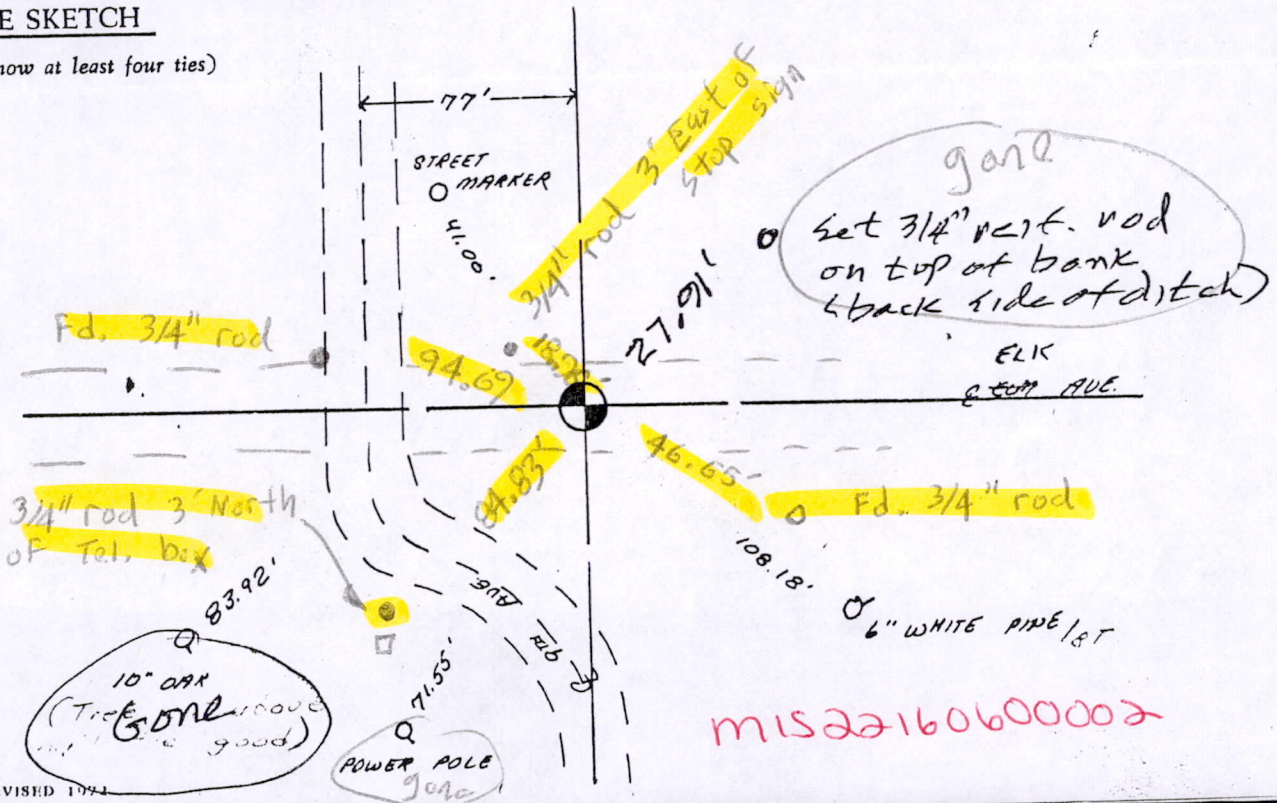 E SKETCH
how at least four ties)
77'
STREET
MARKER
41.00'
3/4" rod 3' East of
stop sign
gone
Set 3/4" reit. rod
on top of bank
(back side of ditch)
27.91'
Fd. 3/4" rod
94.69
ELK
AVE.
84.83'
46.65-
Fd. 3/4" rod
3/4" rod 3' North
of Tel. box
83.92'
108.18'
AVE
6" WHITE PINE
10" OAK
Gone
good)
71.55'
POWER POLE
gone
MIS22160600002
VISED 1972